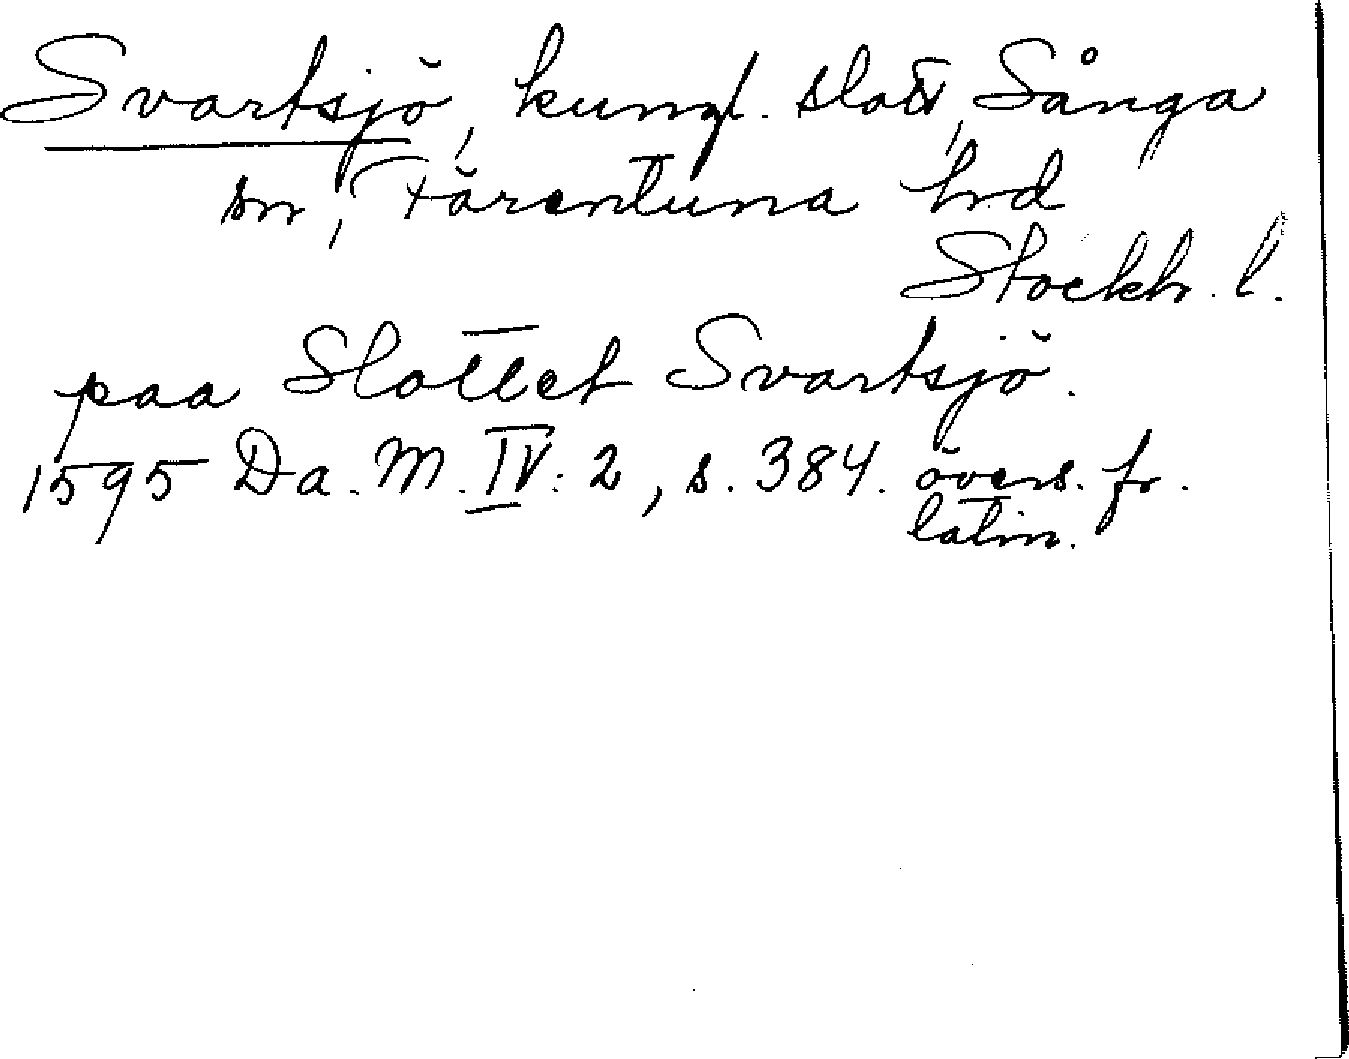 Svartsjö, kungl. slott, Sånga
sn, Färentuna hrd
Stockh. l.
paa Slottet Svartsjö.
1595 Da. M. IV: 2, s. 384. övers. fr.
latin.